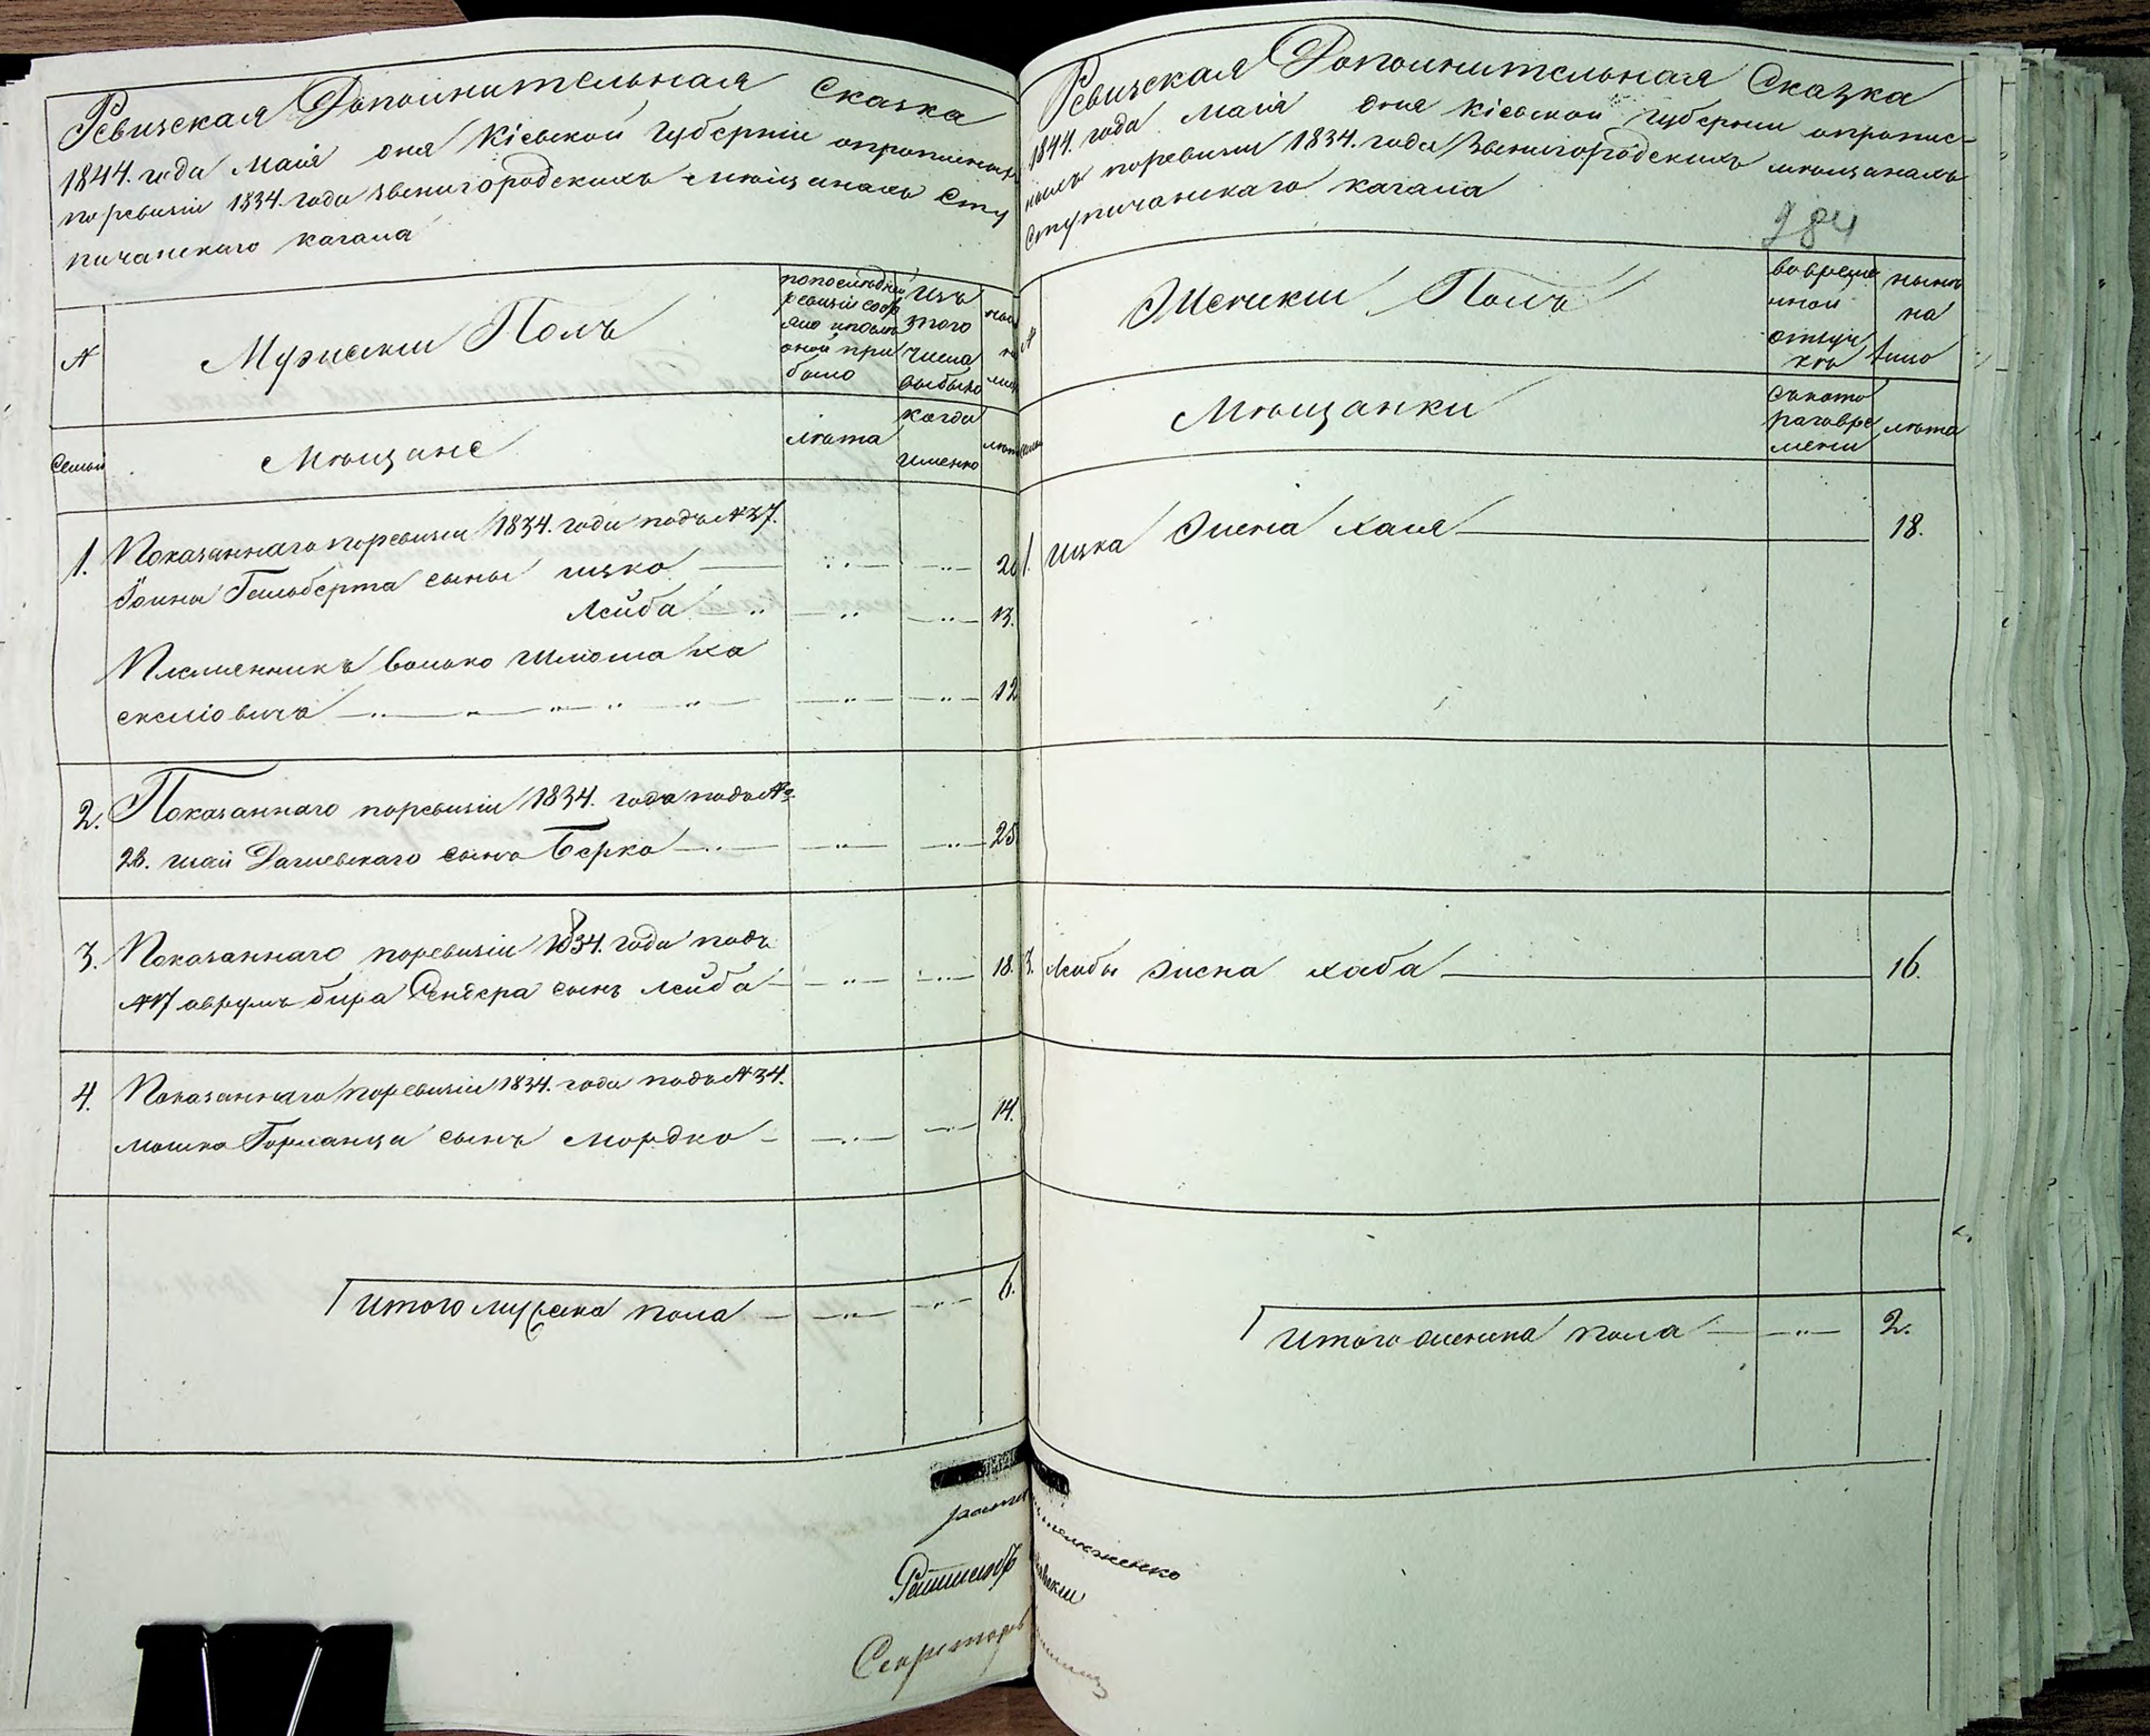 Ревизская Дополнительная Сказка
1844. года Маія дня Кіевской Губерніи опрописных
по ревизіи 1834. года Звенигородскихъ мѣщанахъ Сту
пичанскаго кагала
№
Мужескии Полъ
по последней
ревизіи состо
яло и после
оной при
было
изъ
того
числа
выбыло
Семьи
Мѣщане
лѣта
когда
именно
лѣта
1. Показаннаго по ревизіи 1834. года подъ №37.
Іоина Гельберта сыны ицко 20
Лейба 13.
Племянникъ Волько Шліома ха
скеліовичъ 12
2. Показаннаго по ревизіи 1834. года подъ №
28. шаи Дашевскаго сынъ Берко 25
3. Показаннаго по ревизіи 1834. года подъ
№17 аврумъ бира сынъ Лейба 18.
4. Показаннаго по ревизіи 1834. года подъ №34.
мошка Горланца сынъ мордко 14.
Итого мужеска пола 6.
Секретарь
Ревизская Дополнительная Сказка
1844. года Маія дня Кіевской Губерніи опропис-
ныхъ по ревизіи 1834. года Звенигородскихъ мѣщанахъ
Ступичанскаго кагала
284
№
Женскии Полъ
во време
нной
отлуч
кѣ
нынѣ
на
лицо
Мѣщанки
съ кото
раго вре
мени
лѣта
1. Ицка жена хая 18.
3. Лейбы жена хаба 16.
Итого женска пола 2.